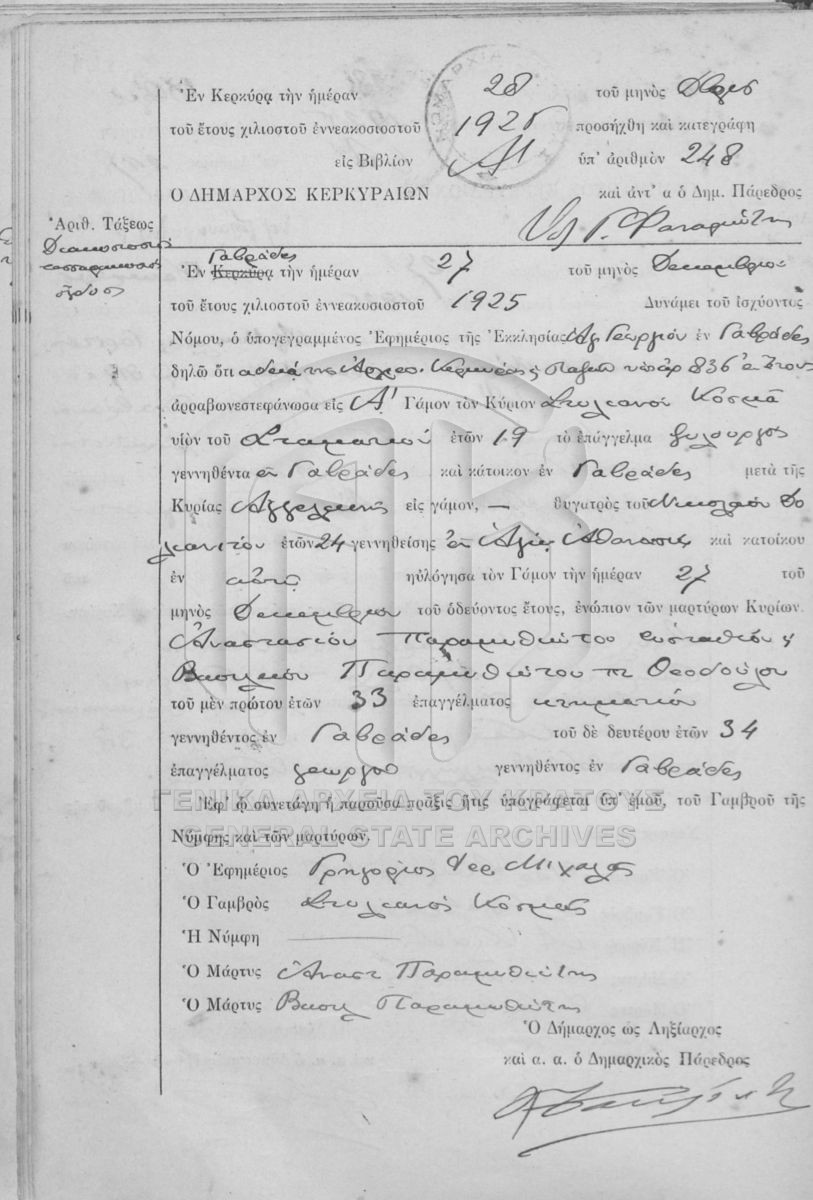 Ἐν Κερκύρᾳ τὴν ἡμέραν 28 τοῦ μηνὸς Δβρίου
τοῦ ἔτους χιλιοστοῦ ἐννεακοσιοστοῦ 1925 προσήχθη καὶ κατεγράφη
εἰς Βιβλίον Α' ὑπ' ἀριθμὸν 248
Ο ΔΗΜΑΡΧΟΣ ΚΕΡΚΥΡΑΙΩΝ καὶ ἀντ' α ὁ Δημ. Πάρεδρος
Ἀριθ. Τάξεως
Διακοσιοστὴ
τεσσαρακοστὴ
ὀγδόη
Γαβράδες
Ἐν Κερκύρᾳ τὴν ἡμέραν 27 τοῦ μηνὸς Δεκεμβρίου
τοῦ ἔτους χιλιοστοῦ ἐννεακοσιοστοῦ 1925 Δυνάμει τοῦ ἰσχύοντος
Νόμου, ὁ ὑπογεγραμμένος Ἐφημέριος τῆς Ἐκκλησίας Ἁγ Γεωργίου ἐν Γαβράδες
δηλῶ ὅτι ἀδείᾳ τῆς Ἀρχιεπ. Κερκύρας & Παξῶν ὑπ ἀρ 836 ἐ. ἔτους
ἀρραβωνεστεφάνωσα εἰς Α' Γάμον τὸν Κύριον Στυλιανὸν Κοσμᾶ
υἱὸν τοῦ Σταματίου ἐτῶν 19 τὸ ἐπάγγελμα ξυλουργὸς
γεννηθέντα ἐν Γαβράδες καὶ κάτοικον ἐν Γαβράδες μετὰ τῆς
Κυρίας Ἀγγελικῆς εἰς γάμον, — θυγατρὸς τοῦ Νικολάου
ἐτῶν 24 γεννηθείσης ἐν Ἁγίῳ Ἀθανασίῳ καὶ κατοίκου
ἐν αὐτῷ ηὐλόγησα τὸν Γάμον τὴν ἡμέραν 27 τοῦ
μηνὸς Δεκεμβρίου τοῦ ὁδεύοντος ἔτους, ἐνώπιον τῶν μαρτύρων Κυρίων.
Ἀναστασίου Παραμυθιώτου Εὐσταθίου &
Βασιλείου Παραμυθιώτου τοῦ Θεοδούλου
τοῦ μὲν πρώτου ἐτῶν 33 ἐπαγγέλματος κτηματίου
γεννηθέντος ἐν Γαβράδες τοῦ δὲ δευτέρου ἐτῶν 34
ἐπαγγέλματος γεωργοῦ γεννηθέντος ἐν Γαβράδες
ΓΕΝΙΚΑ ΑΡΧΕΙΑ ΤΟΥ ΚΡΑΤΟΥΣ
Ἐφ' ᾧ συνετάγη ἡ παροῦσα πρᾶξις ἥτις ὑπογράφεται ὑπ' ἐμοῦ, τοῦ Γαμβροῦ τῆς
GENERAL STATE ARCHIVES
Νύμφης καὶ τῶν μαρτύρων.
Ὁ Ἐφημέριος Γρηγόριος Ἱερ. Μιχαλᾶς
Ὁ Γαμβρὸς Στυλιανὸς Κοσμᾶς
Ἡ Νύμφη
Ὁ Μάρτυς Ἀναστ Παραμυθιώτης
Ὁ Μάρτυς Βασιλ Παραμυθιώτης
Ὁ Δήμαρχος ὡς Ληξίαρχος
καὶ α. α. ὁ Δημαρχικὸς Πάρεδρος